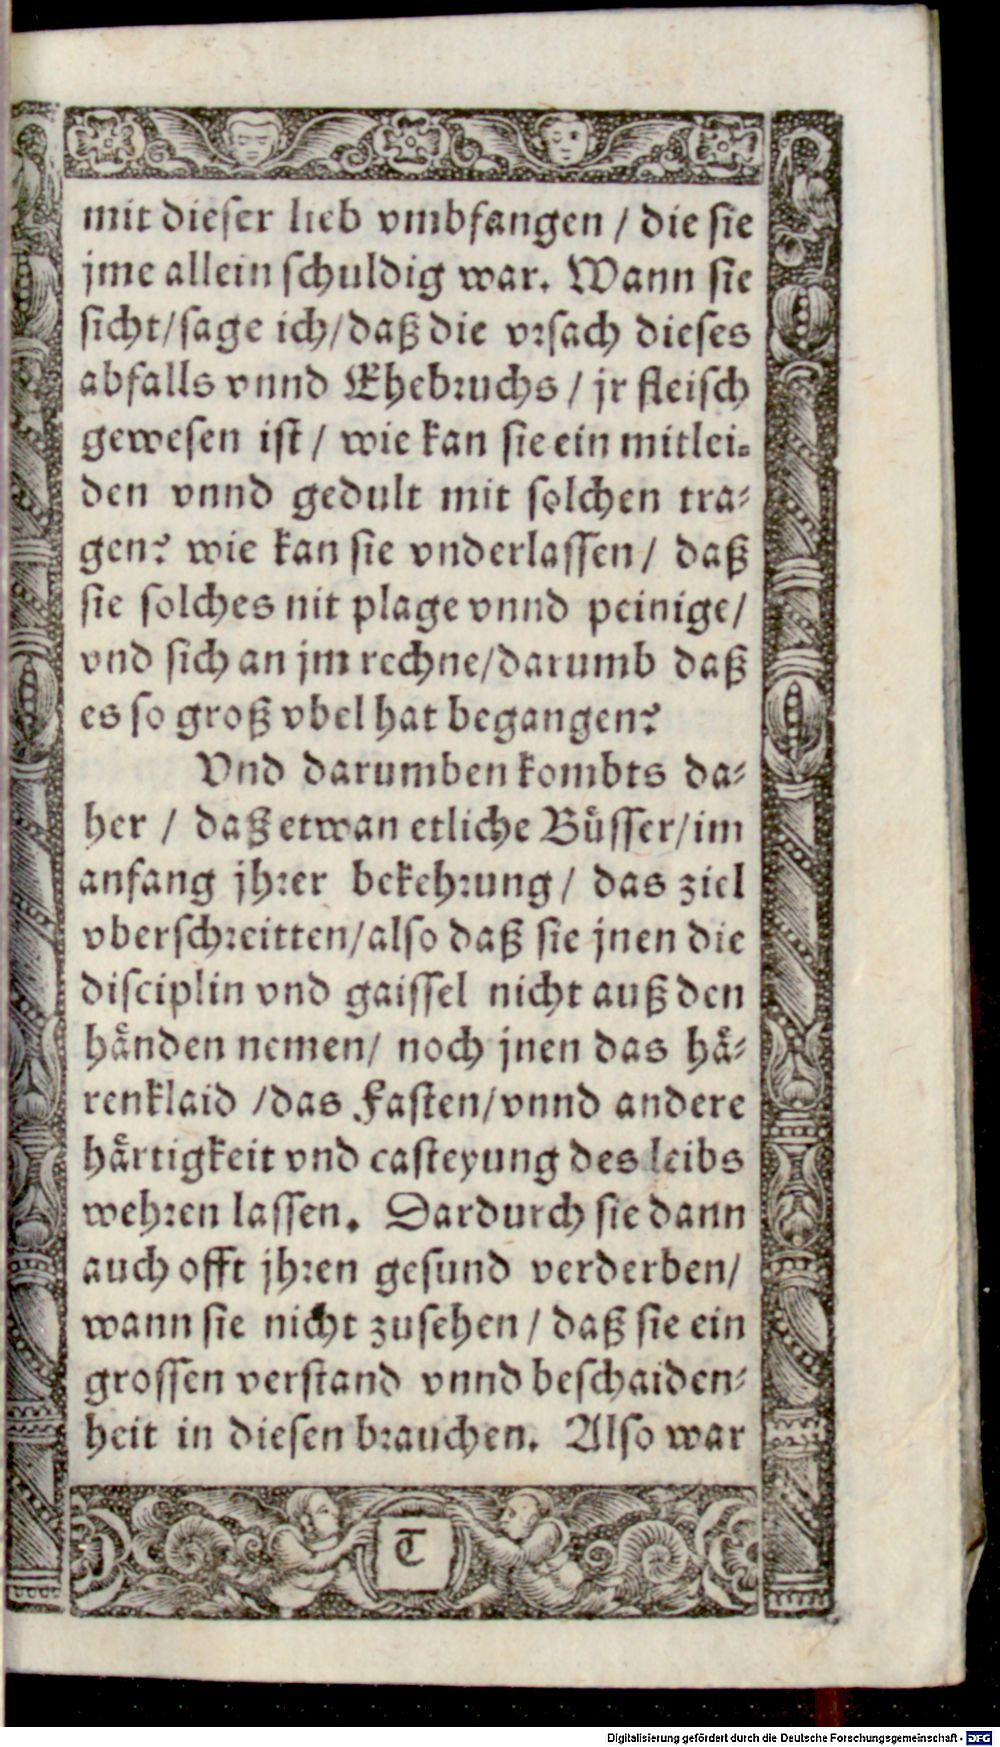 mit dieser lieb vmbfangen / die sie
jme allein schuldig war. Wann sie
sicht/sage ich/daß die vrsach dieses
abfalls vnnd Ehebruchs / jr fleisch
gewesen ist / wie kan sie ein mitlei-
den vnnd gedult mit solchen tra-
gen? wie kan sie vnderlassen / daß
sie solches nit plage vnnd peinige/
vnd sich an jm rechne/darumb daß
es so groß vbel hat begangen?
Vnd darumben kombts da-
her / daß etwan etliche Büsser/im
anfang jhrer bekehrung / das ziel
vberschreitten/also daß sie jnen die
disciplin vnd gaissel nicht auß den
händen nemen/ noch jnen das hä-
renklaid /das Fasten/vnnd andere
härtigkeit vnd casteyung des leibs
wehren lassen. Dardurch sie dann
auch offt jhren gesund verderben/
wann sie nicht zusehen / daß sie ein
grossen verstand vnnd beschaiden-
heit in diesen brauchen. Also war
T
Digitalisierung gefördert durch die Deutsche Forschungsgemeinschaft - DFG